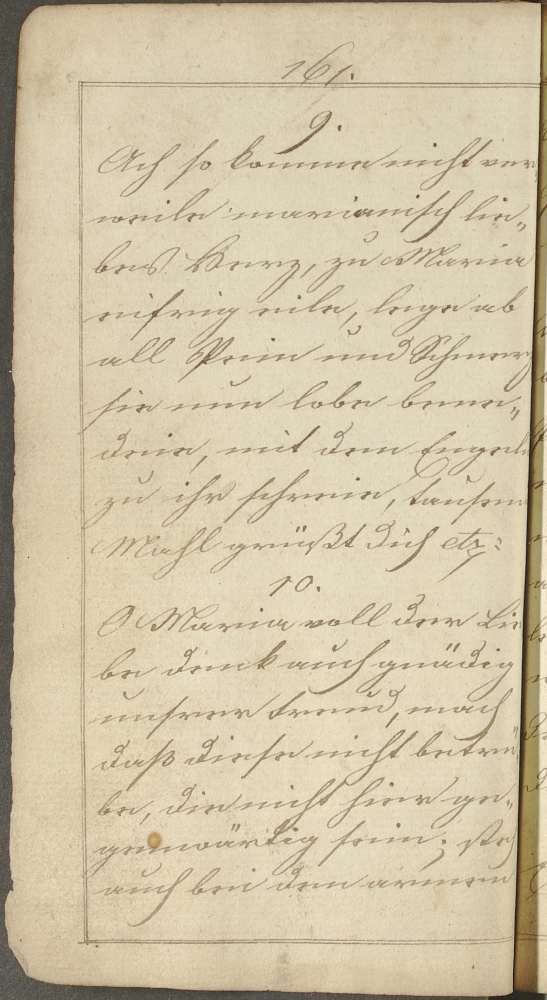 161.
9.
Ach so komme nicht ver
weile marianisch lie„
bes Herz, zu Maria
eifrig eile, lege ab
all Pein und Schmerz
sie nun lobe bene„
deie, mit dem Engel
zu ihr schreie, tausend
Mahl grüßt dich etz:
10.
O Maria voll der Lie
be denk auch gnädig
unsrer Freund, mach
daß diese nicht betrü
be, die nicht hier ge„
genwärtig sein; steh
auch bei den armen